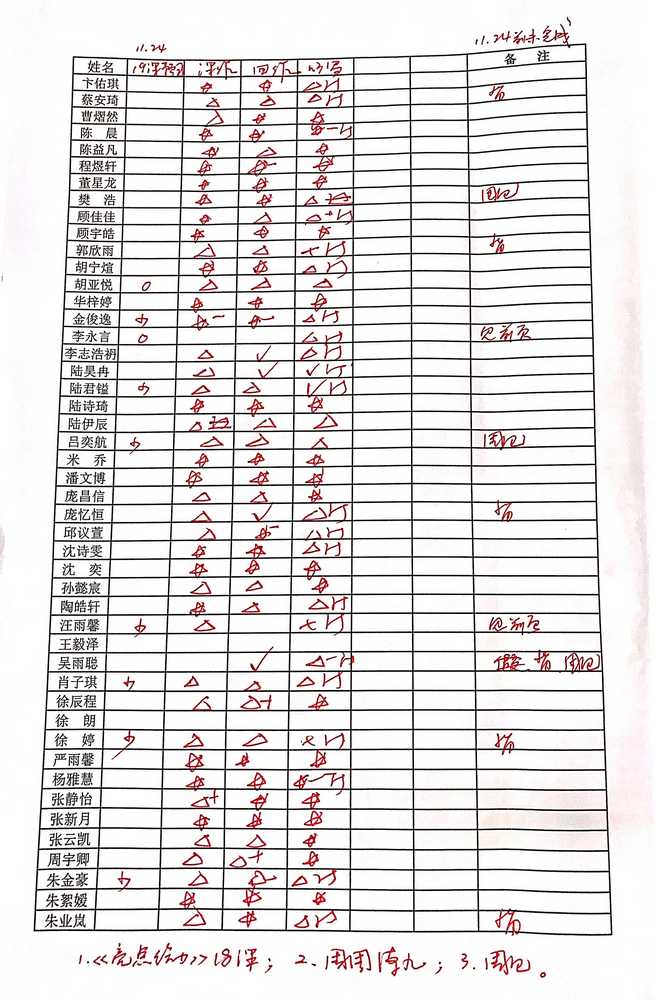 11.24 11.24前未完成
姓名 19课预习 课作 回作 听写 备 注
卞佑琪 ☆ ☆ △订 背
蔡安琦 △ △ △订
曹熠然 △ ☆ ☆
陈 晨 ☆ ☆ ☆-订
陈益凡 ☆ △ ☆
程煜轩 ☆ ☆- ☆
董星龙 ☆ ☆ ☆
樊 浩 ☆ ☆ △ 周记
顾佳佳 ☆ △ △+订
顾宇皓 ☆ ☆ ☆
郭欣雨 △ △ ×订 背
胡宁煊 ☆ ☆ △订
胡亚悦 0 △ △ △
华梓婷 ☆ ☆ ☆
金俊逸 少 ☆- ☆- △订
李永言 0 △订 见前页
李志浩礽 △ ✓ △订
陆昊冉 △ ✓ ✓订
陆君镒 少 △ △ ✓订
陆诗琦 ☆ ☆ ☆
陆伊辰 △ △ △
吕奕航 少 △ △ △ 周记
米 乔 ☆ ☆ ☆
潘文博 ☆ ☆ ☆
庞昌信 △ △ ☆
庞忆恒 △ ✓ △订 背
邱议萱 △ ☆- △订
沈诗雯 ☆ ☆ △订
沈 奕 ☆ ☆ ☆
孙懿宸 △ △ ☆
陶皓轩 ☆ △ △订
汪雨馨 少 △ ×订 见前页
王毅泽
吴雨聪 ✓ △-订 背 周记
肖子琪 少 △ △ △订
徐辰程 △ △+ ☆
徐 朗
徐 婷 少 △ △ ×订 背
严雨馨 ☆ ☆ ☆
杨雅慧 ☆ ☆ ☆-订
张静怡 △+ ☆ ☆
张新月 ☆ ☆ ☆
张云凯 △ △ ☆
周宇卿 △ △+ ☆
朱金豪 少 △ △- △订
朱絮媛 ☆ ☆ ☆
朱业岚 △ ☆ △订 背
1.《亮点给力》18课; 2.周周清九; 3.周记。